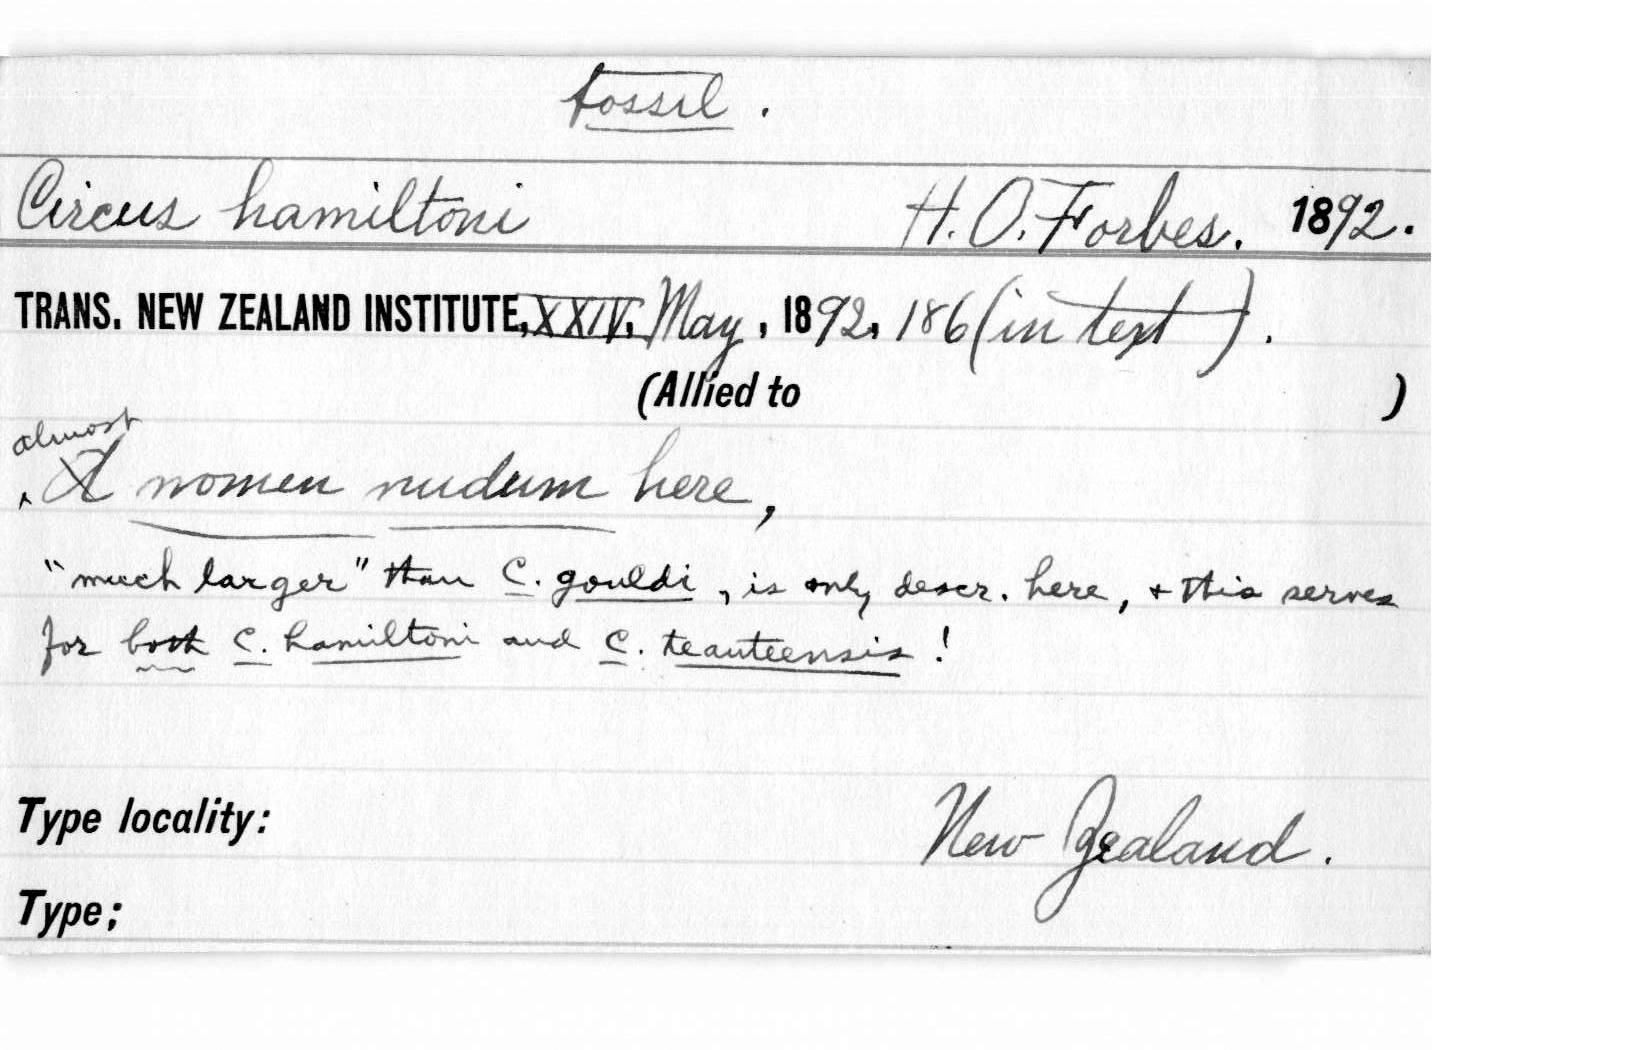 fossil.
Circus hamiltoni H. O. Forbes. 1892.
TRANS. NEW ZEALAND INSTITUTE, XXIV, May, 1892, 186 (in text).
(Allied to )
almost
^ A nomen nudum here,
"much larger" than C. gouldi, is only descr. here, + this serves
for both C. hamiltoni and C. teauteensis!
Type locality: New Zealand.
Type;